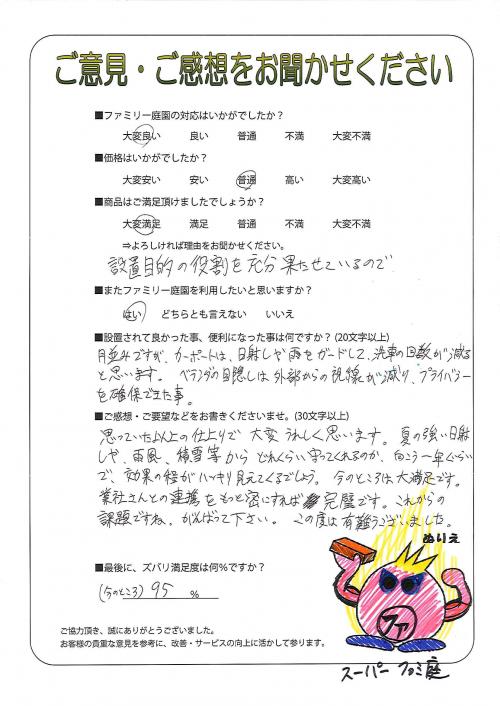 ご意見・ご感想をお聞かせください
■ファミリー庭園の対応はいかがでしたか？
大変良い 良い 普通 不満 大変不満
■価格はいかがでしたか？
大変安い 安い 普通 高い 大変高い
■商品はご満足頂けましたでしょうか？
大変満足 満足 普通 不満 大変不満
⇒よろしければ理由をお聞かせください。
設置目的の役割を充分果たせているので
■またファミリー庭園を利用したいと思いますか？
はい どちらとも言えない いいえ
■設置されて良かった事、便利になった事は何ですか？(20文字以上)
月並みですが、カーポートは、日射しや雨をガードして、洗車の回数が減る
と思います。 ベランダの目隠しは外部からの視線が減り、プライバシー
を確保できた事。
■ご感想・ご要望などをお書きくださいませ。(30文字以上)
思っていた以上の仕上りで大変うれしく思います。夏の強い日射
しや、雨風、積雪等からどれくらい守ってくれるのか、向こう一年くらい
で、効果の程がハッキリ見えてくるでしょう。今のところは大満足です。
業社さんとの連携をもっと密にすれば完璧です。これからの
課題ですね、がんばって下さい。この度は有難うございました。
ぬりえ
■最後に、ズバリ満足度は何%ですか？
(今のところ) 95 %
ファ
ご協力頂き、誠にありがとうございました。
お客様の貴重な意見を参考に、改善・サービスの向上に活かして参ります。
スーパー ファミ庭